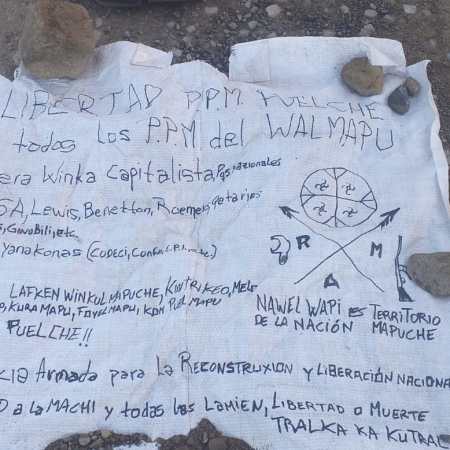 LIBERTAD P.P.M. PUELCHE
todos los P.P.M del WALMAPU
era Winka Capitalista, Pqs nacionales
SA, Lewis, Benetton, Roemer, getarios
etc.
Yanakonas (CODECI,
LAFKEN WINKUL MAPUCHE, KINTRIKEO, MELE
KURA MAPU, FOYEL MAPU, KOM PUEL MAPU
PUELCHE!!
R A M
NAWEL WAPI es TERRITORIO
DE LA NACIÓN MAPUCHE
cia Armada para la RECONSTRUXION y LIBERACIÓN NACIONA
D a la MACHI y todas las LAMIEN, LIBERTAD o MUERTE
TRALKA KA KUTRAL